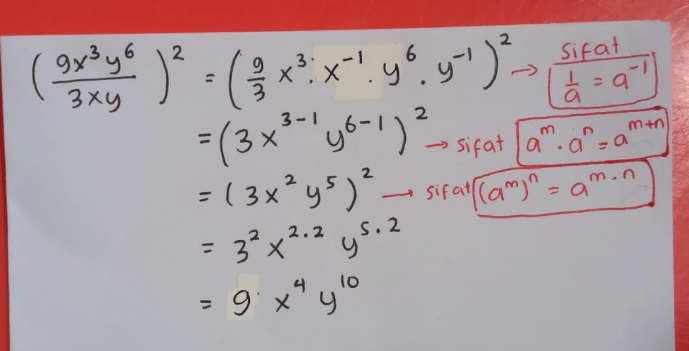 (9x³y⁶ / 3xy)² = (9/3 x³ · x⁻¹ · y⁶ · y⁻¹)² → sifat 1/a = a⁻¹
= (3x³⁻¹ y⁶⁻¹)² → sifat aᵐ · aⁿ = aᵐ⁺ⁿ
= (3x² y⁵)² → sifat (aᵐ)ⁿ = aᵐ·ⁿ
= 3² x²·² y⁵·²
= 9 x⁴ y¹⁰